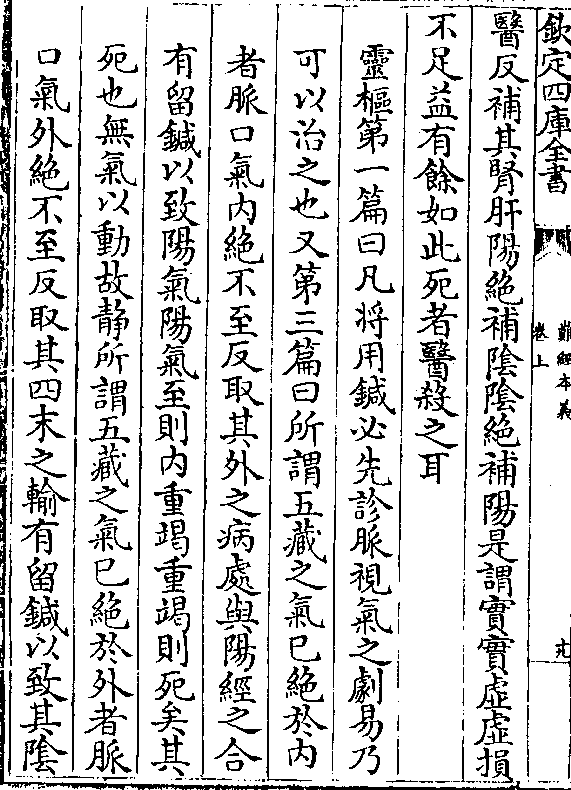 欽定四庫全書
難經本義
卷上
醫反補其腎肝陽絕補陰陰絕補陽是謂實實虛虛損
不足益有餘如此死者醫殺之耳
靈樞第一篇曰凡將用鍼必先診脈視氣之劇易乃
可以治之也又第三篇曰所謂五藏之氣已絕於內
者脈口氣內絕不至反取其外之病處與陽經之合
有留鍼以致陽氣陽氣至則內重竭重竭則死矣其
死也無氣以動故静所謂五藏之氣已絕於外者脈
口氣外絕不至反取其四末之輸有留鍼以致其陰